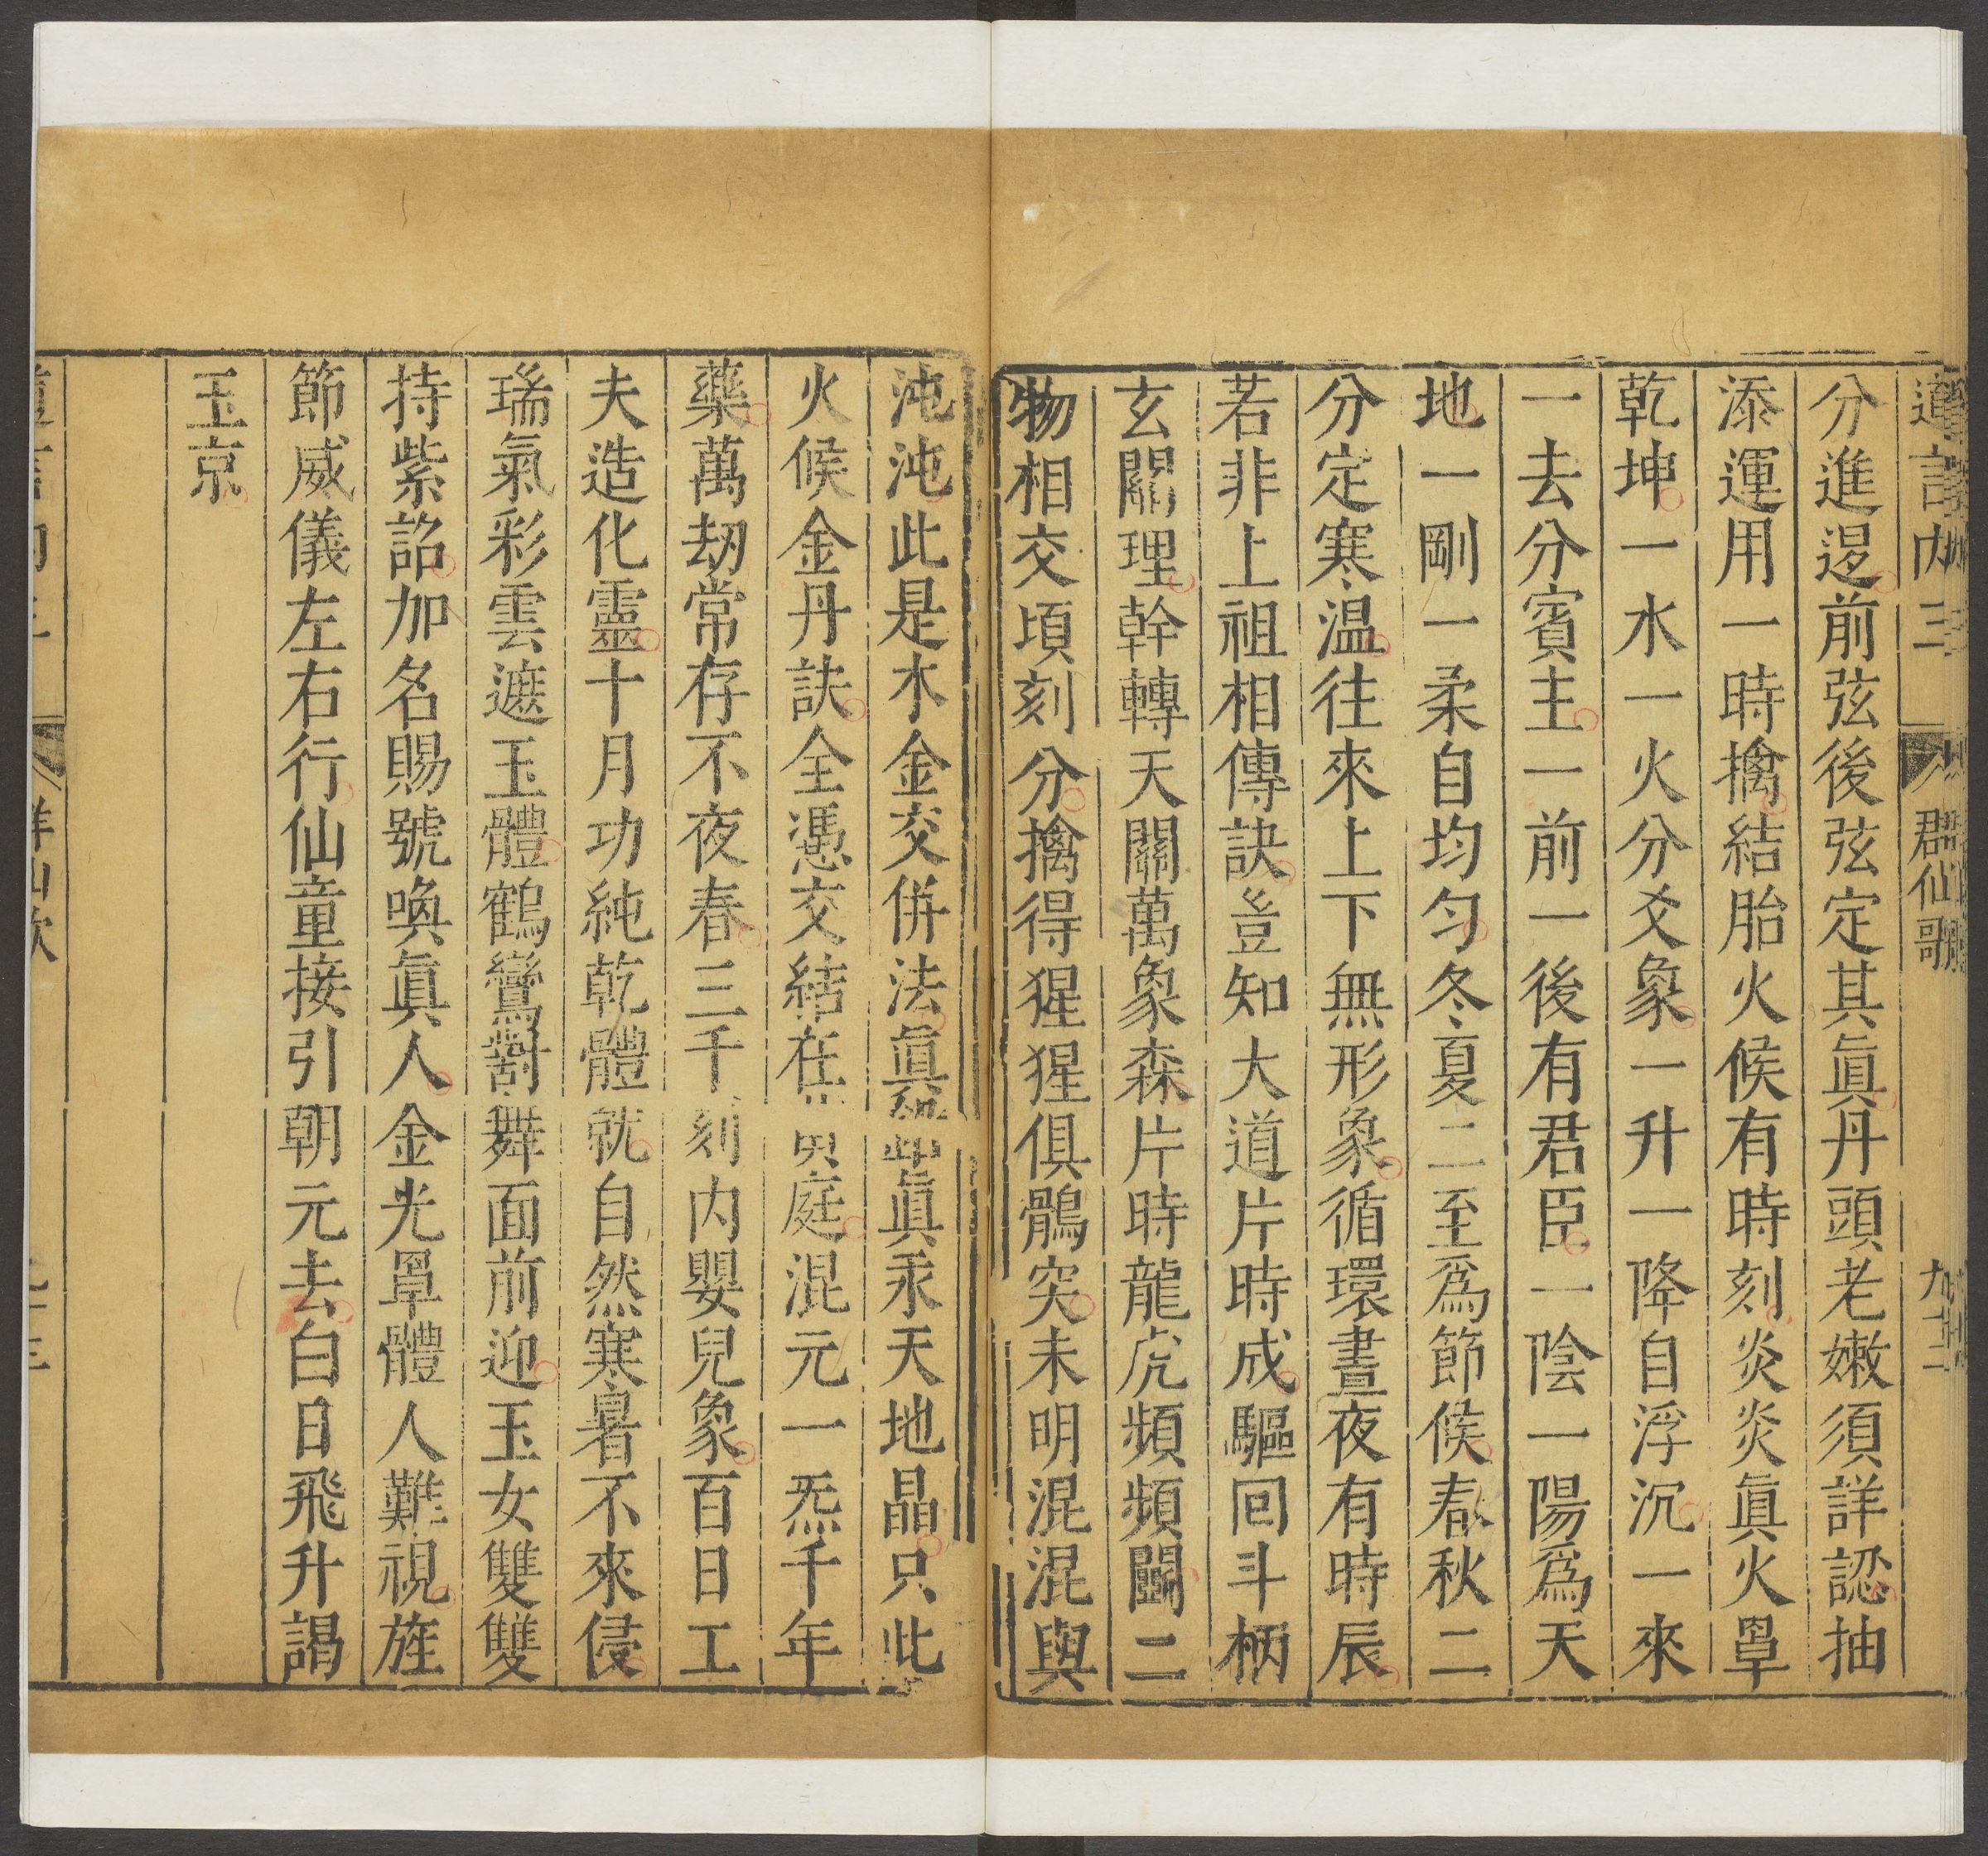 道言內 三 群仙歌 九十二
分進退前弦後弦定其眞丹頭老嫩須詳認抽
添運用一時擒結胎火候有時刻炎炎眞火罩
乾坤一水一火分爻象一升一降自浮沉一來
一去分賓主一前一後有君臣一陰一陽爲天
地一剛一柔自均勻冬夏二至爲節候春秋二
分定寒温往來上下無形象循環晝夜有時辰
若非上祖相傳訣豈知大道片時成驅回斗柄
玄關理幹轉天關萬象森片時龍虎頻頻鬬二
物相交頃刻分擒得猩猩俱鶻突未明混混與
沌沌此是水金交併法眞鉛眞汞天地晶只此
火候金丹訣全憑交結在黄庭混元一炁千年
藥萬劫常存不夜春三千刻内嬰兒象百日工
夫造化靈十月功純乾體就自然寒暑不來侵
瑞氣彩雲遮玉體鶴鸞對舞面前迎玉女雙雙
持紫詔加名賜號喚眞人金光罩體人難視旌
節威儀左右行仙童接引朝元去白日飛升謁
玉京